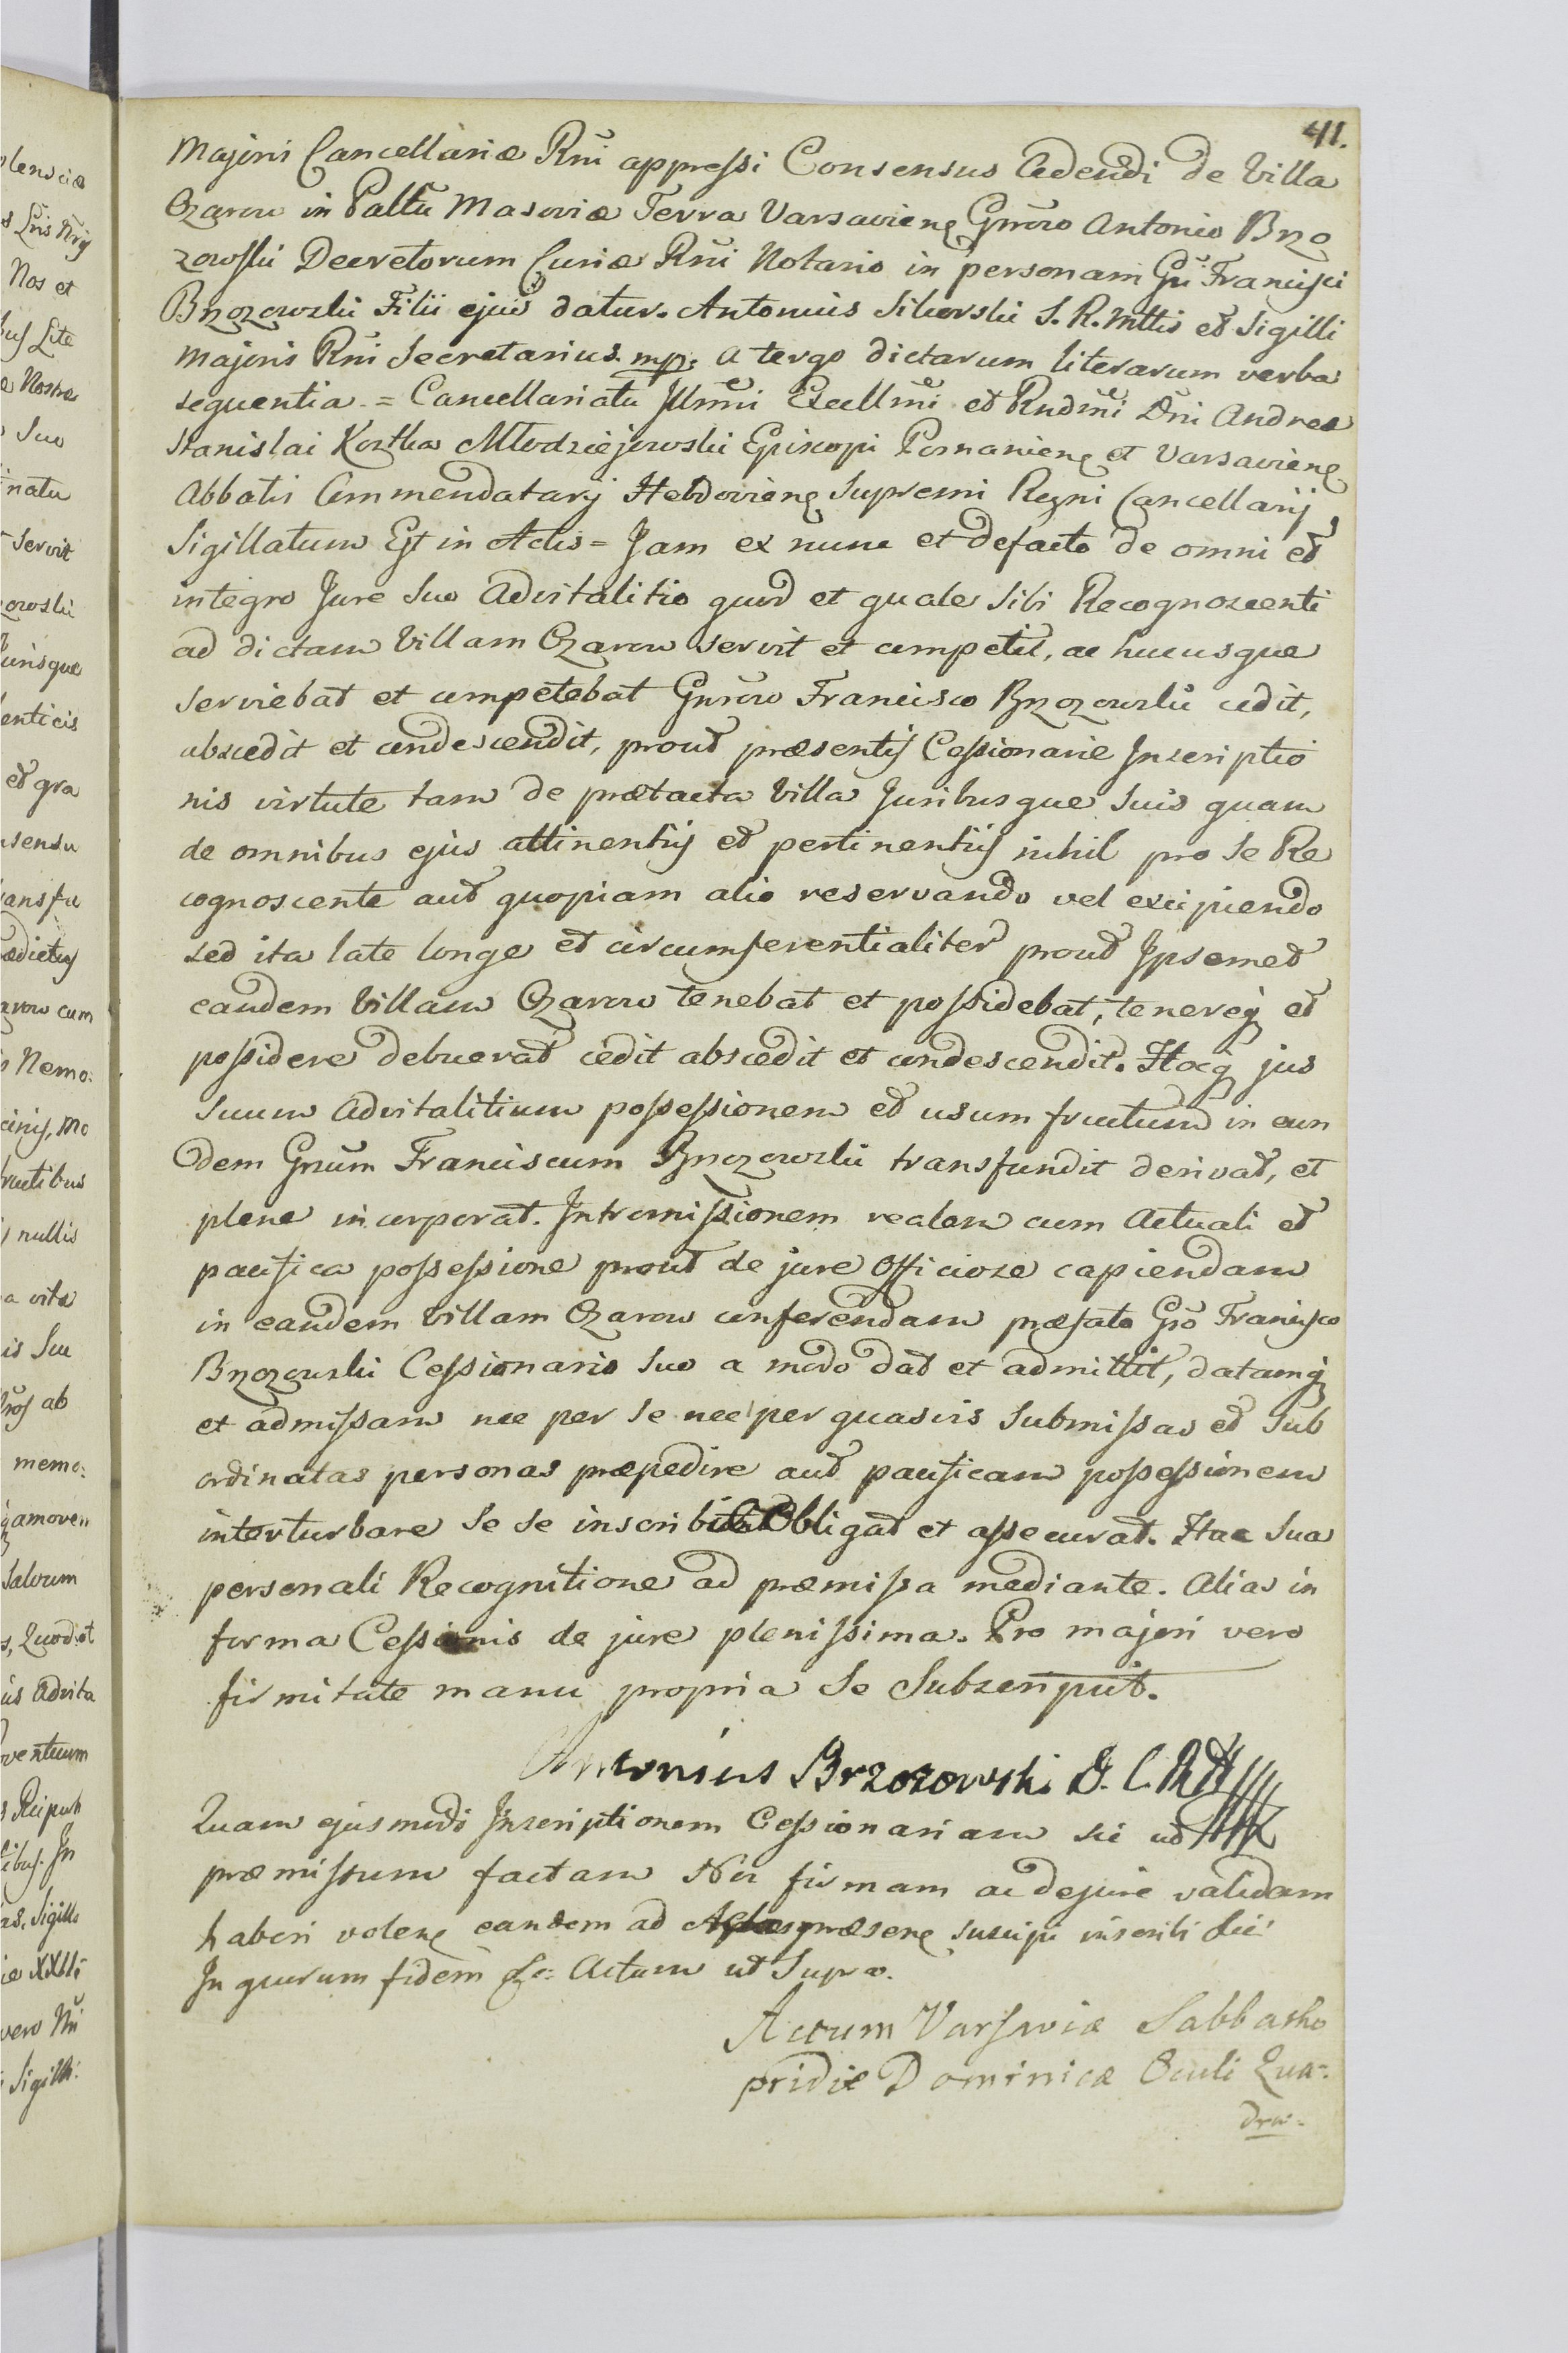 41.
Majoris Cancellariæ Rñi appressi Consensus Cedendi de Villa
Ozarow in Palttu Masoviæ Terra Varsavien Gnroso Antonio Brzo
zowski Decretorum Curiæ Rñi Notario in personam Gsi Francisci
Brzozowski Filii ejus datur. Antonius Sikorski S. R. Mttis et Sigilli
Majoris Rñi Secretarius mp. A tergo dictarum literarum verba
sequentia = Cancellariatu Jllmi Excllmi et Rndmi Dñi Andreæ
Stanislai Kostka Młodziejowski Episcopi Posnanien et Varsavien
Abbatis Commendatarij Hebdovien Supremi Regni Cancellarij
Sigillatum Est in Actis = Jam ex nunc et defacto de omni et
integro Jure Suo Advitalitio quod et quale Sibi Recognoscenti
ad dictam Villam Ozarow servit et competit, ac hucusque
serviebat et competebat Gnroso Francisco Brzozowski cedit,
abscedit et condescendit, prout præsentis Cessionariæ Jnscriptio
nis virtute tam de prætacta Villa Juribusque Suis quam
de omnibus ejus attinentijs et pertinentijs nihil pro Se Re
cognoscente aut quopiam alio reservando vel excipiendo
sed ita late longe et circumferentialiter prout Jpsemet
eandem Villam Ozarow tenebat et possidebat, tenereq et
possidere debuerat cedit abscedit et condescendit. Hocq jus
Suum Advitalitium possessionem et usum fructum in eun
dem Gnsum Franciscum Brzozowski transfundit derivat, et
plene incorporat. Jntromissionem realem cum Actuali et
pacifica possessione prout de jure Officiose capiendam
in eandem Villam Ozarow conferendam præfato Gso Francisco
Brzozowski Cessionario Suo a modo dat et admittit, datamq
et admissam nec per se nec per quasvis Submissas et Sub
ordinatas personas præpedire aut pacificam possessionem
interturbare Se se inscribit Obligat et assecurat. Hac Sua
personali Recognitione ad præmissa mediante. Alias in
forma Cessionis de jure plenissima. Pro majori vero
firmitate manu propria Se Subscripsit.
Antonius Brzozowski D. C. R.
Quam ejusmodi Jnscriptionem Cessionariam sic ut
præmissum factam Nos firmam ac dejure validam
haberi volen eandem ad Acta præsen suscipi inscribi
Jn quorum fidem &c: Actum ut Supra.
Actum Varsaviæ Sabbatho
pridie Dominicæ Oculi Qua=
dra=